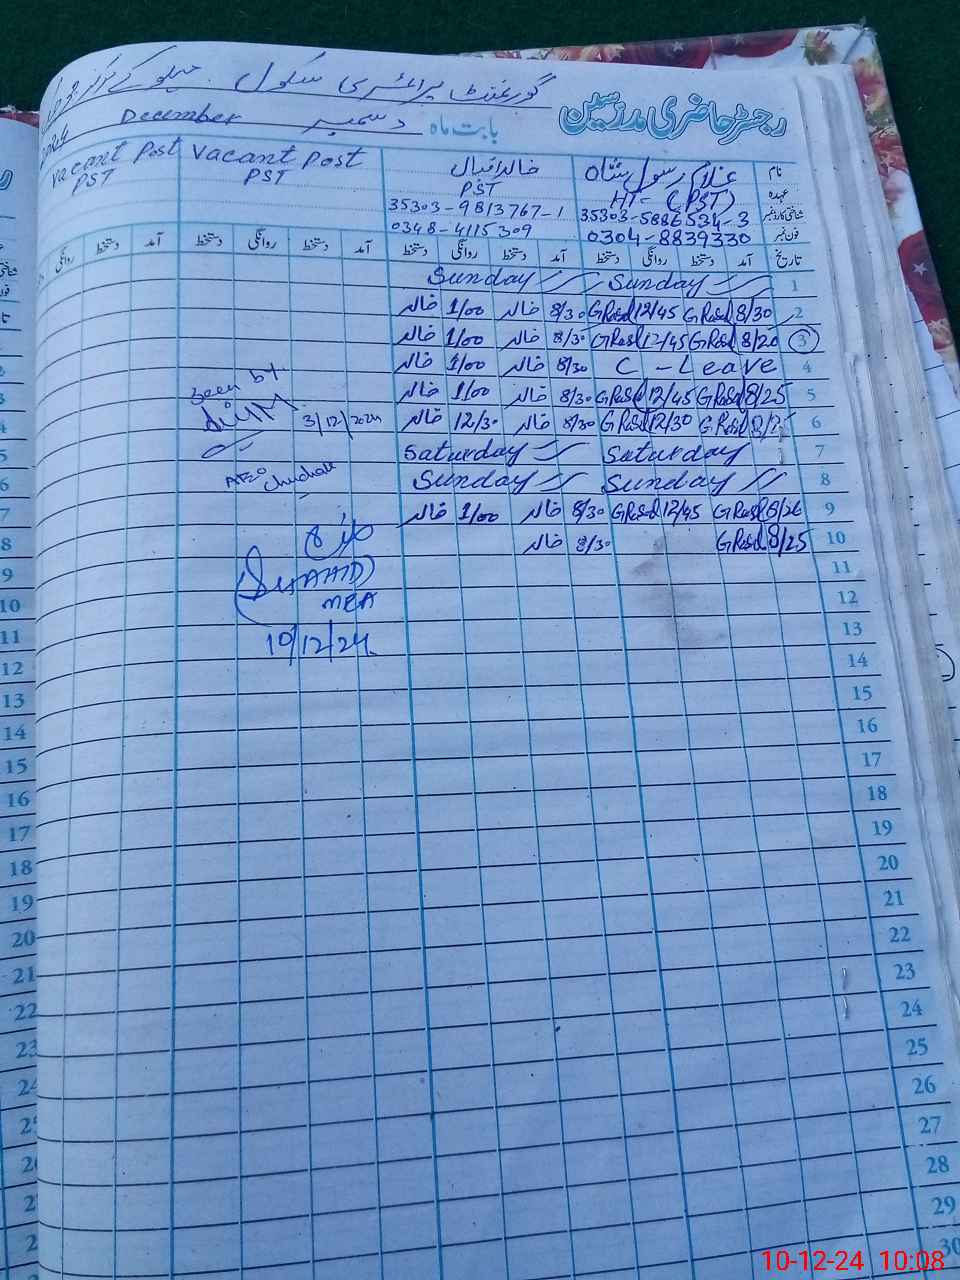 گورنمنٹ پرائمری سکول
رجسٹر حاضری مدرسین
بابت ماہ دسمبر December
2024
نام غلام رسول شاہ خالد اقبال Vacant Post Vacant Post
عہدہ HT - (PST) PST PST PST
شناختی کارڈ نمبر 35303-5886534-3 35303-9813767-1
فون نمبر 0304-8839330 0348-4115309
تاریخ آمد دستخط روانگی دستخط آمد دستخط روانگی دستخط آمد دستخط روانگی دستخط آمد دستخط روانگی
1 Sunday Sunday
2 8/30 GRasul 12/45 GRasul 8/30 خالد 1/00 خالد
3 8/20 GRasul 12/45 GRasul 8/30 خالد 1/00 خالد
4 C - Leave 8/30 خالد 1/00 خالد
5 8/25 GRasul 12/45 GRasul 8/30 خالد 1/00 خالد
6 GRasul 12/30 GRasul 8/30 خالد 12/30 خالد
7 Saturday Saturday
8 Sunday Sunday
9 8/26 GRasul 12/45 GRasul 8/30 خالد 1/00 خالد
10 8/25 GRasul 8/30 خالد
11
12
13
14
15
16
17
18
19
20
21
22
23
24
25
26
27
28
29
30
Seen by
3/12/2024
AEO
(SHAHID)
MEA
10/12/24
10-12-24 10:08